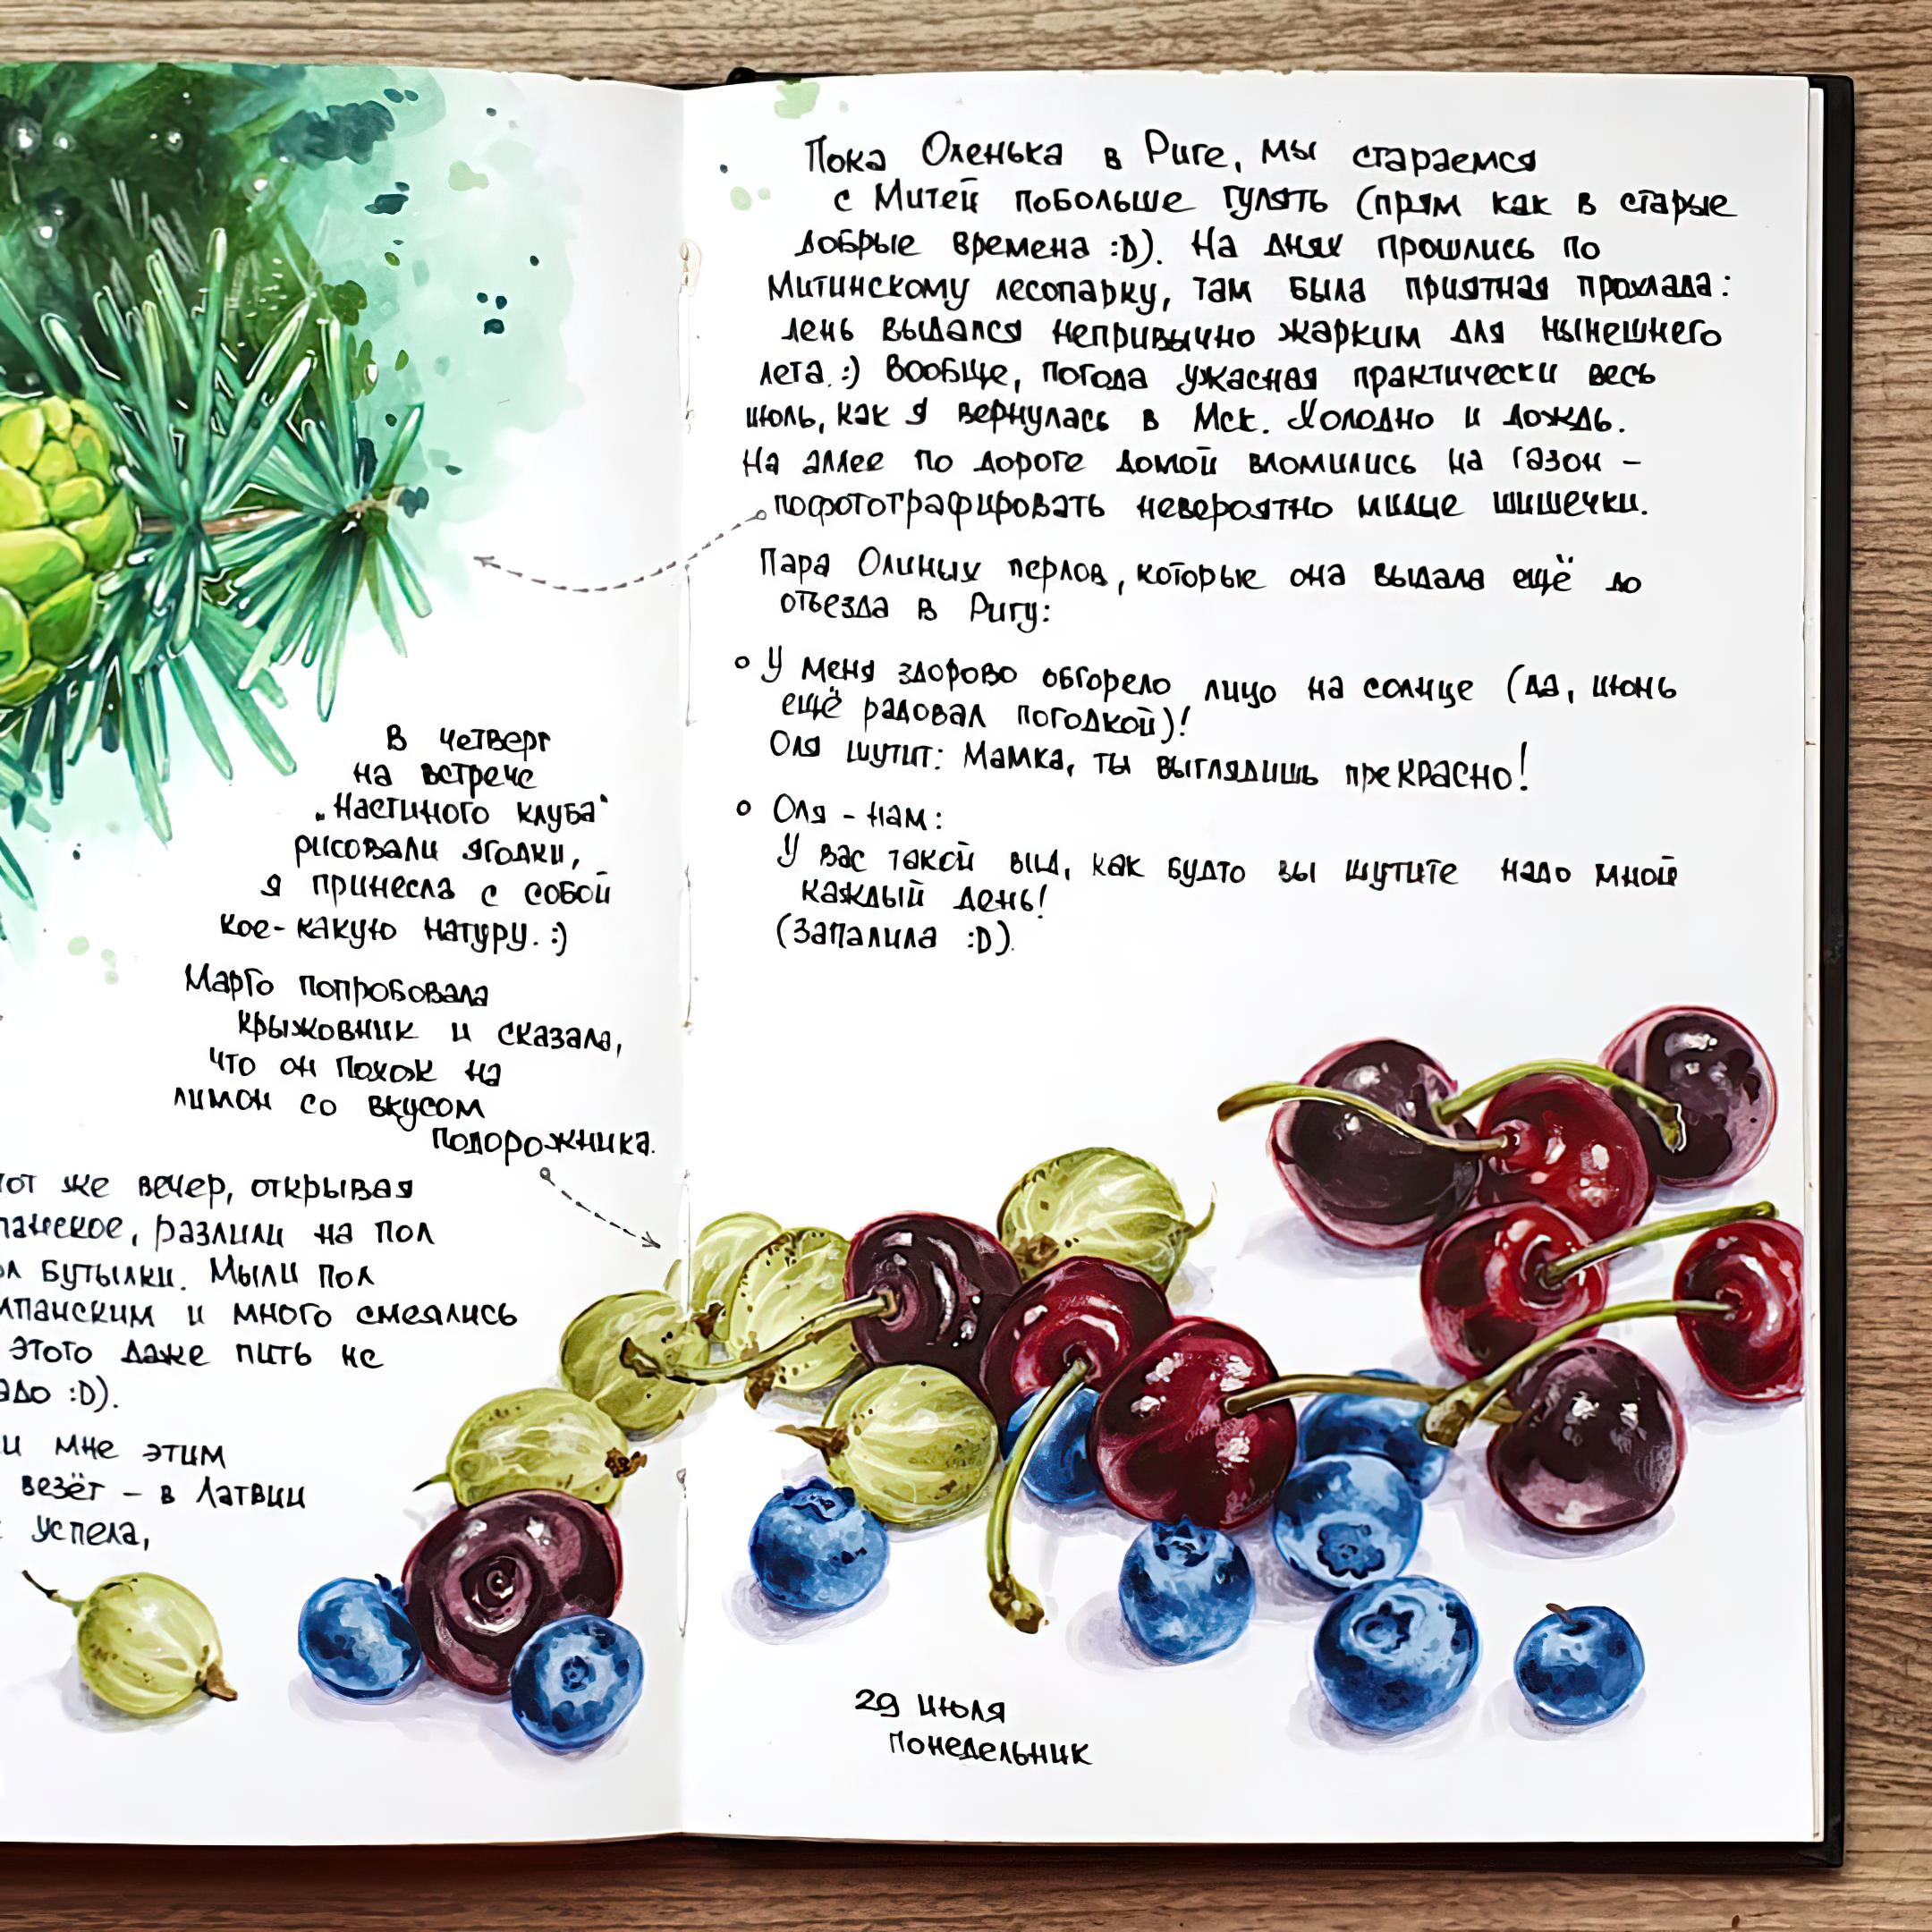 В четверг
на встрече
„Настиного клуба“
рисовали ягодки,
я принесла с собой
кое-какую натуру. :)
Марго попробовала
крыжовник и сказала,
что он похож на
лимон со вкусом
подорожника.
тот же вечер, открывая
панское, разлили на пол
бутылки. Мыли пол
мпанским и много смеялись
этого даже пить не
адо :D).
и мне этим
везёт – в Латвии
успела,
Пока Оленька в Риге, мы стараемся
с Митей побольше гулять (прям как в старые
добрые времена :D). На днях прошлись по
Митинскому лесопарку, там была приятная прохлада:
день выдался непривычно жарким для нынешнего
лета. :) Вообще, погода ужасная практически весь
июль, как я вернулась в Мск. Холодно и дождь.
На аллее по дороге домой вломились на газон –
пофотографировать невероятно милые шишечки.
Пара Олиных перлов, которые она выдала ещё до
отъезда в Ригу:
о У меня здорово обгорело лицо на солнце (да, июнь
ещё радовал погодкой)!
Оля шутит: Мамка, ты выглядишь преКРАСНО!
о Оля – нам:
У вас такой вид, как будто вы шутите надо мной
каждый день!
(Запалила :D).
29 июля
понедельник